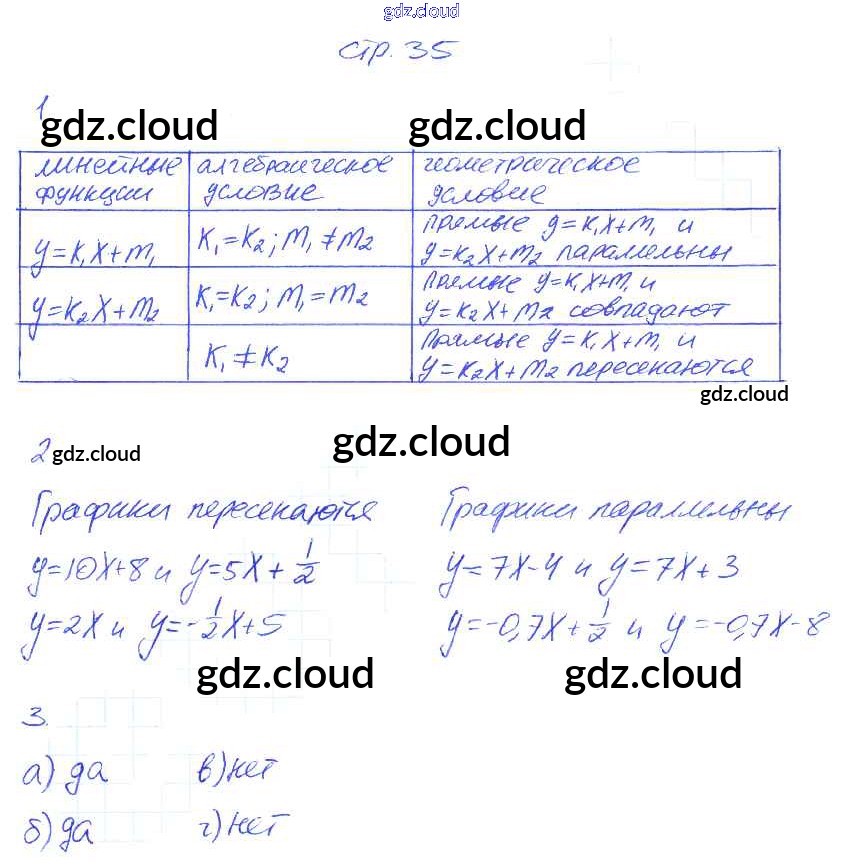 gdz.cloud
стр. 35
1
gdz.cloud gdz.cloud
линейные функции алгебраическое условие геометрическое условие
y=K₁X+m₁ K₁=K₂; m₁≠m₂ прямые y=K₁X+m₁ и y=K₂X+m₂ параллельны
y=K₂X+m₂ K₁=K₂; m₁=m₂ прямые y=K₁X+m₁ и y=K₂X+m₂ совпадают
K₁≠K₂ прямые y=K₁X+m₁ и y=K₂X+m₂ пересекаются
gdz.cloud
gdz.cloud
2 gdz.cloud
Графики пересекаются Графики параллельны
y=10X+8 и y=5X+1/2 y=7X-4 и y=7X+3
y=2X и y=-1/2X+5 y=-0,7X+1/2 и y=-0,7X-8
gdz.cloud gdz.cloud
3.
а) да в) нет
б) да г) нет
gdz.cloud gdz.cloud